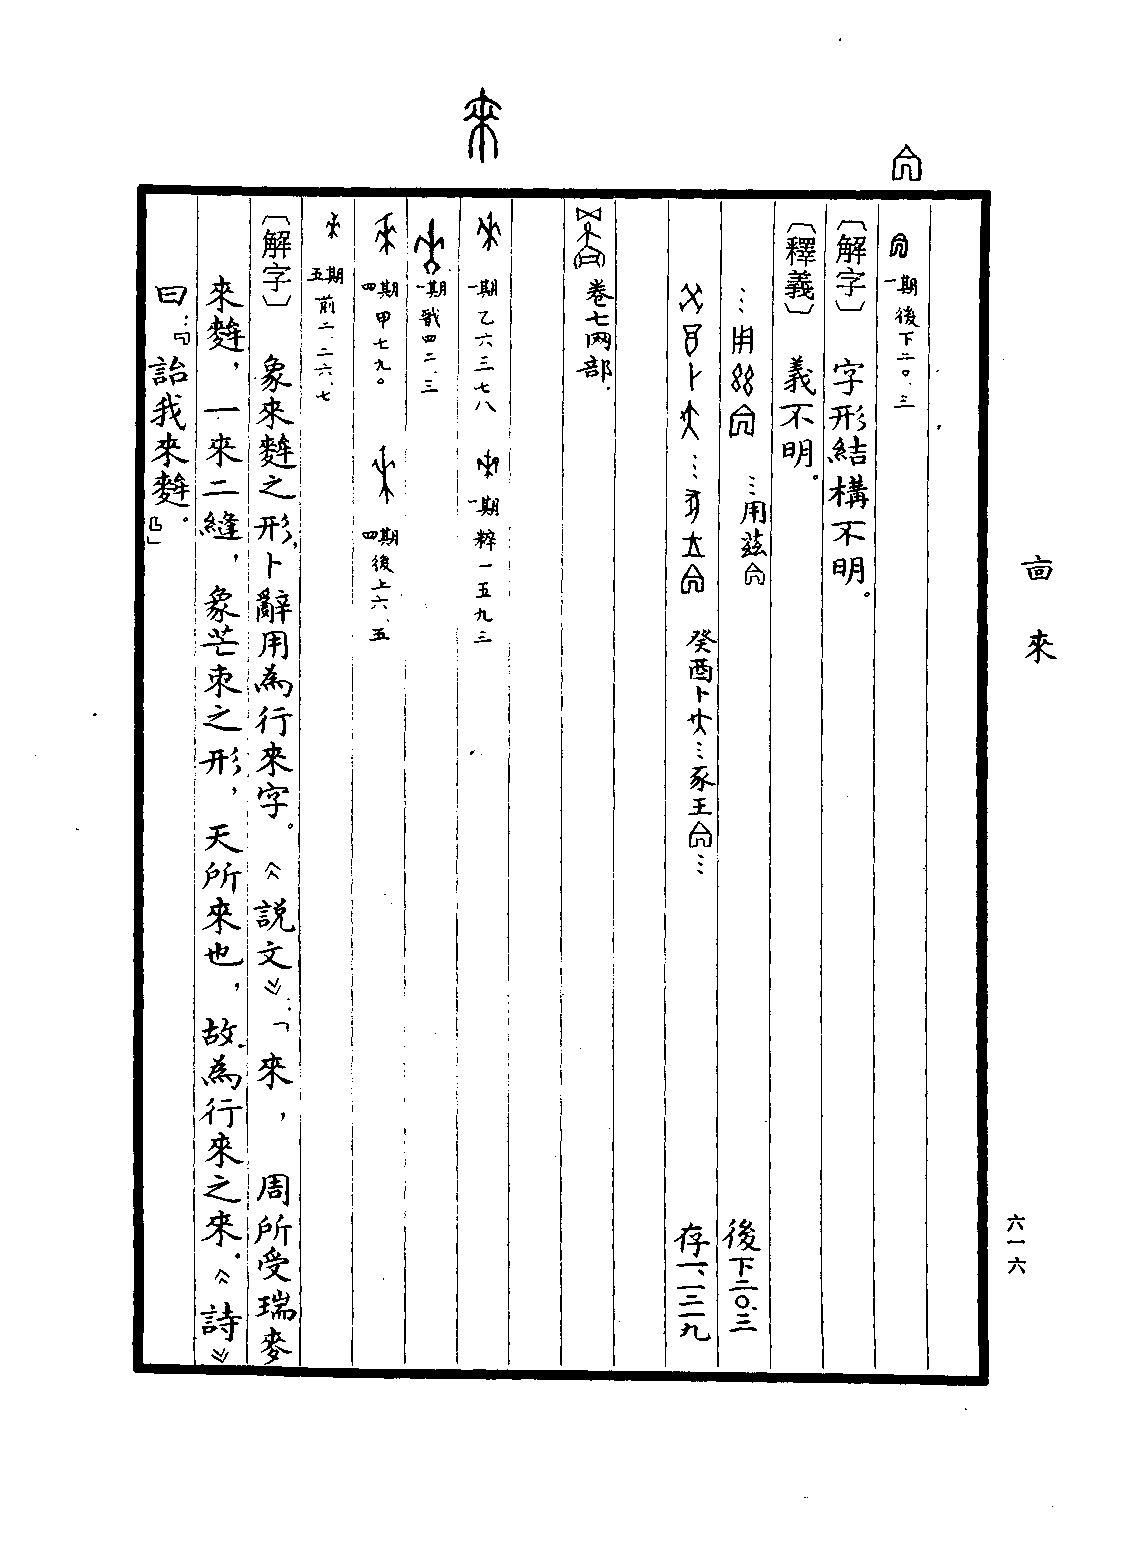 來
六一六
一期 後下二〇.三
〔解字〕 字形結構不明。
〔釋義〕 義不明。
…用茲 後下二〇.三
癸酉卜…豕王… 存一、一三一九
卷七网部.
一期 乙六三七八 一期 粹一五九三
一期 戩四二.三
四期 甲七九〇 四期 後上六.五
五期 前二.二六.七
〔解字〕 象來麰之形,卜辭用為行來字。《說文》:「來,周所受瑞麥
來麰,一來二縫,象芒朿之形,天所來也,故為行來之來。《詩》
曰:『詒我來麰。』」